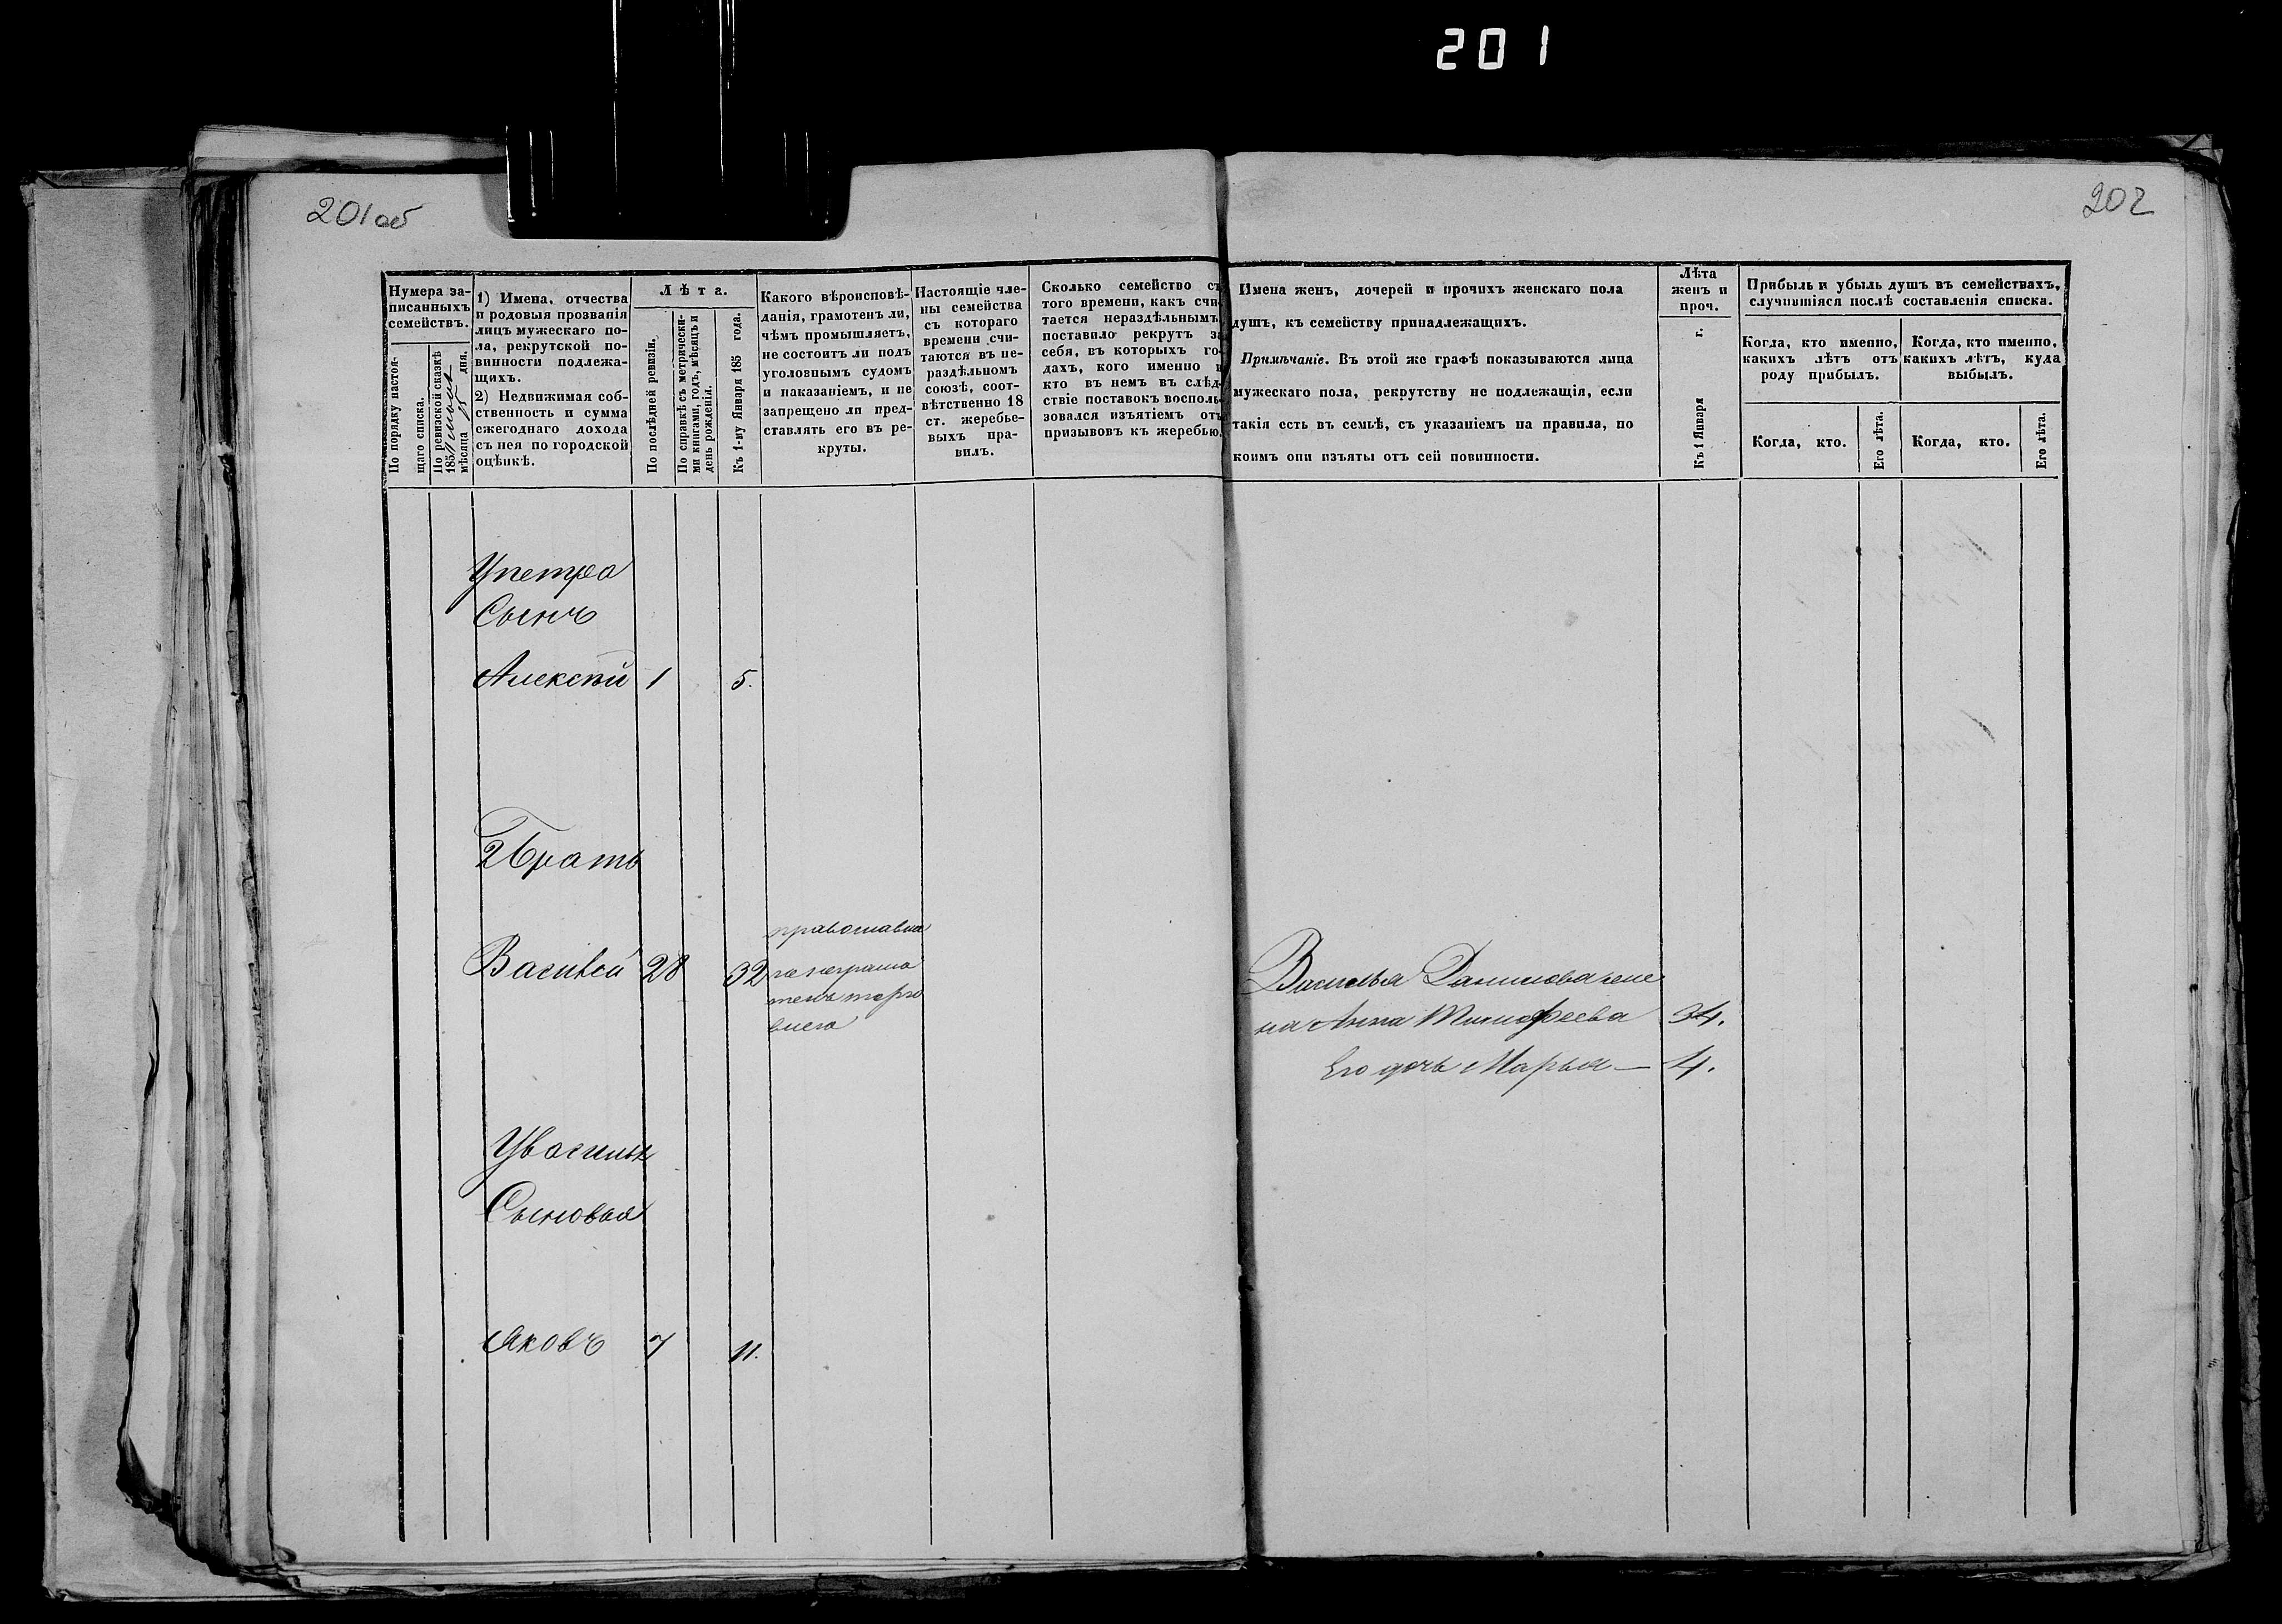 201
201об
202
Нумера за-
писанныхъ
семействъ.
По порядку настоя-
щаго списка.
По ревизской сказкѣ
185 мѣсяца 15 дня.
1) Имена, отчества
и родовыя прозванія
лицъ мужескаго по-
ла, рекрутской по-
винности подлежа-
щихъ.
2) Недвижимая соб-
ственность и сумма
ежегоднаго дохода
съ нея по городской
оцѣнкѣ.
Лѣта.
По послѣдней ревизіи.
По справкѣ съ метрически-
ми книгами, годъ, мѣсяцъ и
день рожденія.
Къ 1-му Января 185 года.
Какого вѣроисповѣ-
данія, грамотенъ ли,
чѣмъ промышляетъ,
не состоитъ ли подъ
уголовнымъ судомъ
и наказаніемъ, и не
запрещено ли пред-
ставлять его въ ре-
круты.
Настоящіе чле-
ны семейства
съ котораго
времени счи-
таются въ не-
раздѣльномъ
союзѣ, соот-
вѣтственно 18
ст. жеребье-
выхъ пра-
вилъ.
Сколько семейство съ
того времени, какъ счи-
тается нераздѣльнымъ
поставило рекрутъ за
себя, въ которыхъ го-
дахъ, кого именно и
кто въ немъ въ слѣд-
ствіе поставокъ восполь-
зовался изъятіемъ отъ
призывовъ къ жеребью.
Имена женъ, дочерей и прочихъ женскаго пола
душъ, къ семейству принадлежащихъ.
Примѣчаніе. Въ этой же графѣ показываются лица
мужескаго пола, рекрутству не подлежащія, если
такія есть въ семьѣ, съ указаніемъ на правила, по
коимъ они изъяты отъ сей повинности.
Лѣта
женъ и
проч.
Къ 1 Января г.
Прибыль и убыль душъ въ семействахъ,
случившіяся послѣ составленія списка.
Когда, кто именно,
какихъ лѣтъ отъ
роду прибылъ.
Когда, кто именно,
какихъ лѣтъ, куда
выбылъ.
Когда, кто.
Его лѣта.
Когда, кто.
Его лѣта.
Упетра
Сынъ
Алексѣй 1 5.
2 Братъ
Василей 28 32
Василья Данилова жене
на Анна Тимофеева 34.
Его дочь Марья — 4.
Увасилья
Сыновья
Яковъ 7 11.